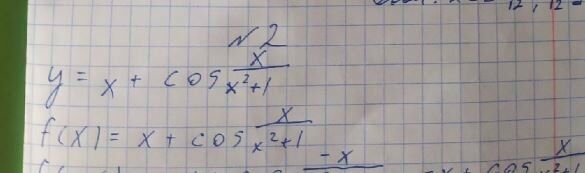 12, 12
№2
y = x + cos x/(x²+1)
f(x) = x + cos x/(x²+1)
-x x + cos x/(x²+1)